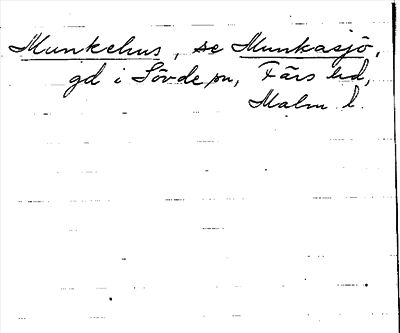 Munkehus, se Munkasjö,
gd i Sövde sn, Färs hd,
Malm. l.